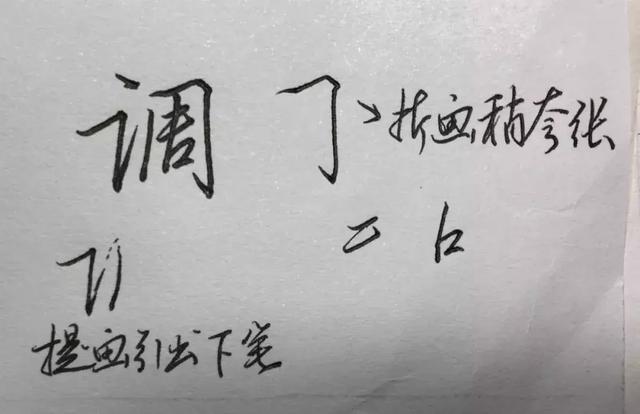 调
折画稍夸张
提画引出下笔